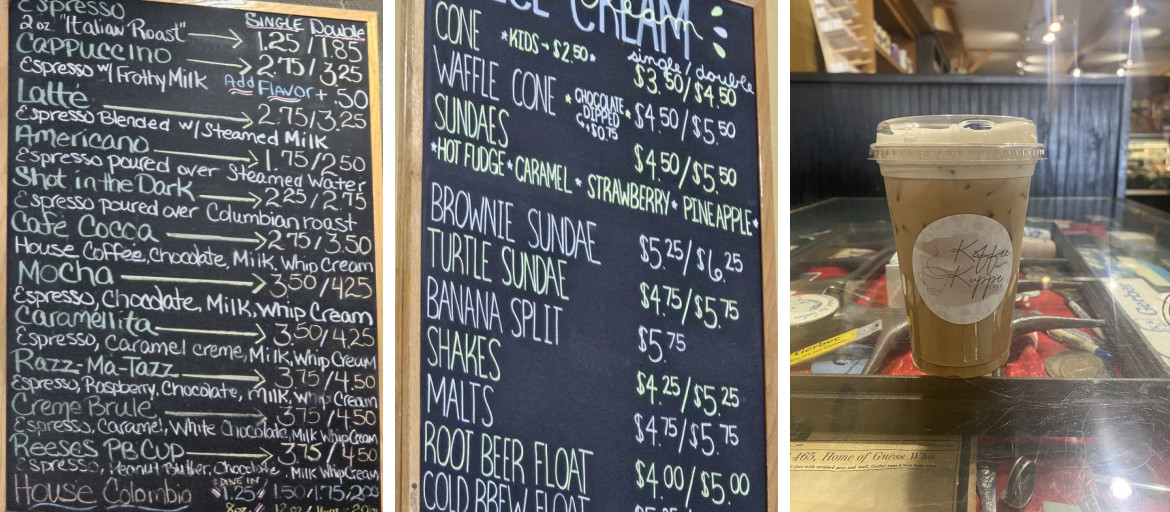 Espresso
SINGLE Double
2 oz "Italian Roast" 1.25/1.85
Cappuccino 2.75/3.25
Espresso w/ Frothy Milk Add Flavor + .50
Latté 2.75/3.25
Espresso Blended w/ Steamed Milk
Americano 1.75/2.50
Espresso poured over Steamed Water
Shot in the Dark 2.25/2.75
Espresso poured over Columbian roast
Café Cocca 2.75/3.50
House Coffee, Chocolate, Milk, Whip Cream
Mocha 3.50/4.25
Espresso, Chocolate, Milk, whip Cream
Caramellita 3.50/4.25
Espresso, Caramel creme, Milk, Whip Cream
Razz-Ma-Tazz 3.75/4.50
Espresso, Raspberry, Chocolate, milk, whip Cream
Creme Brulé 3.75/4.50
Espresso, Caramel, White Chocolate, Milk Whip Cream
Reeses PB Cup 3.75/4.50
Espresso, Peanut Butter, Chocolate, Milk Whip Cream
DINE IN
House Colombia 1.25 1.50/1.75/2.00
ICE CREAM
Cream
single/double
CONE *KIDS - $2.50* $3.50/$4.50
WAFFLE CONE *CHOCOLATE DIPPED +$0.75* $4.50/$5.50
SUNDAES $4.50/$5.50
*HOT FUDGE*CARAMEL*STRAWBERRY*PINEAPPLE*
BROWNIE SUNDAE $5.25/$6.25
TURTLE SUNDAE $4.75/$5.75
BANANA SPLIT $5.75
SHAKES $4.25/$5.25
MALTS $4.75/$5.75
ROOT BEER FLOAT $4.00/$5.00
COLD BREW FLOAT
Koffee
Kuppe
Gerber
465, Home of Guess Who